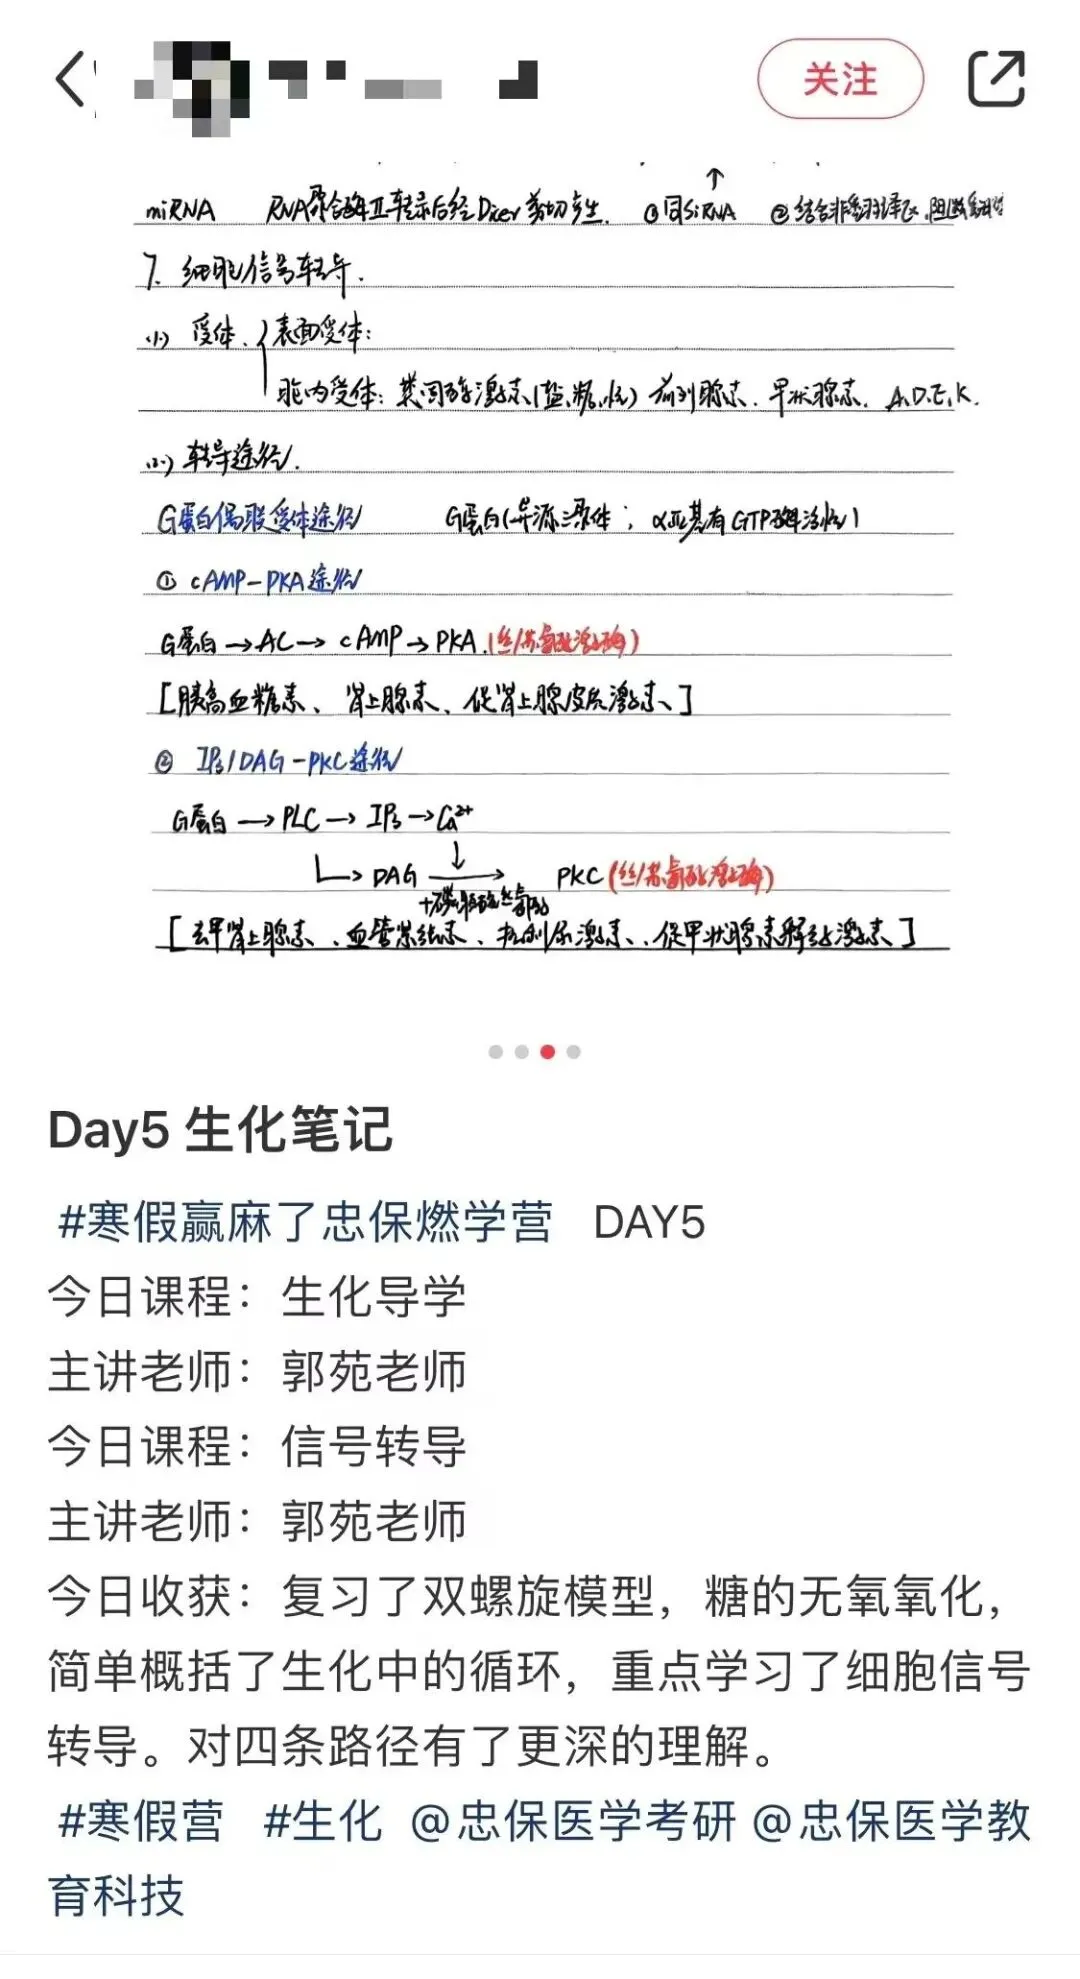 关注
miRNA RNA聚合酶Ⅱ转录后经Dicer剪切产生. ①同siRNA ②结合非翻译区,阻断翻译
7. 细胞信号转导.
(1) 受体. 表面受体:
胞内受体: 类固醇激素(盐.糖.性) 前列腺素. 甲状腺素. A.D.E.K.
(2) 转导途径.
G蛋白偶联受体途径 G蛋白(异源三聚体; α亚基有GTP酶活性)
① cAMP-PKA途径
G蛋白→AC→cAMP→PKA.(丝/苏氨酸激酶)
[胰高血糖素、肾上腺素、促肾上腺皮质激素、]
② IP3/DAG-PKC途径
G蛋白→PLC→IP3→Ca²⁺
DAG → PKC(丝/苏氨酸激酶)
+磷脂酰丝氨酸
[去甲肾上腺素、血管紧张素、抗利尿激素、促甲状腺素释放激素、]
Day5 生化笔记
#寒假赢麻了忠保燃学营 DAY5
今日课程：生化导学
主讲老师：郭苑老师
今日课程：信号转导
主讲老师：郭苑老师
今日收获：复习了双螺旋模型，糖的无氧氧化，
简单概括了生化中的循环，重点学习了细胞信号
转导。对四条路径有了更深的理解。
#寒假营 #生化 @忠保医学考研 @忠保医学教
育科技